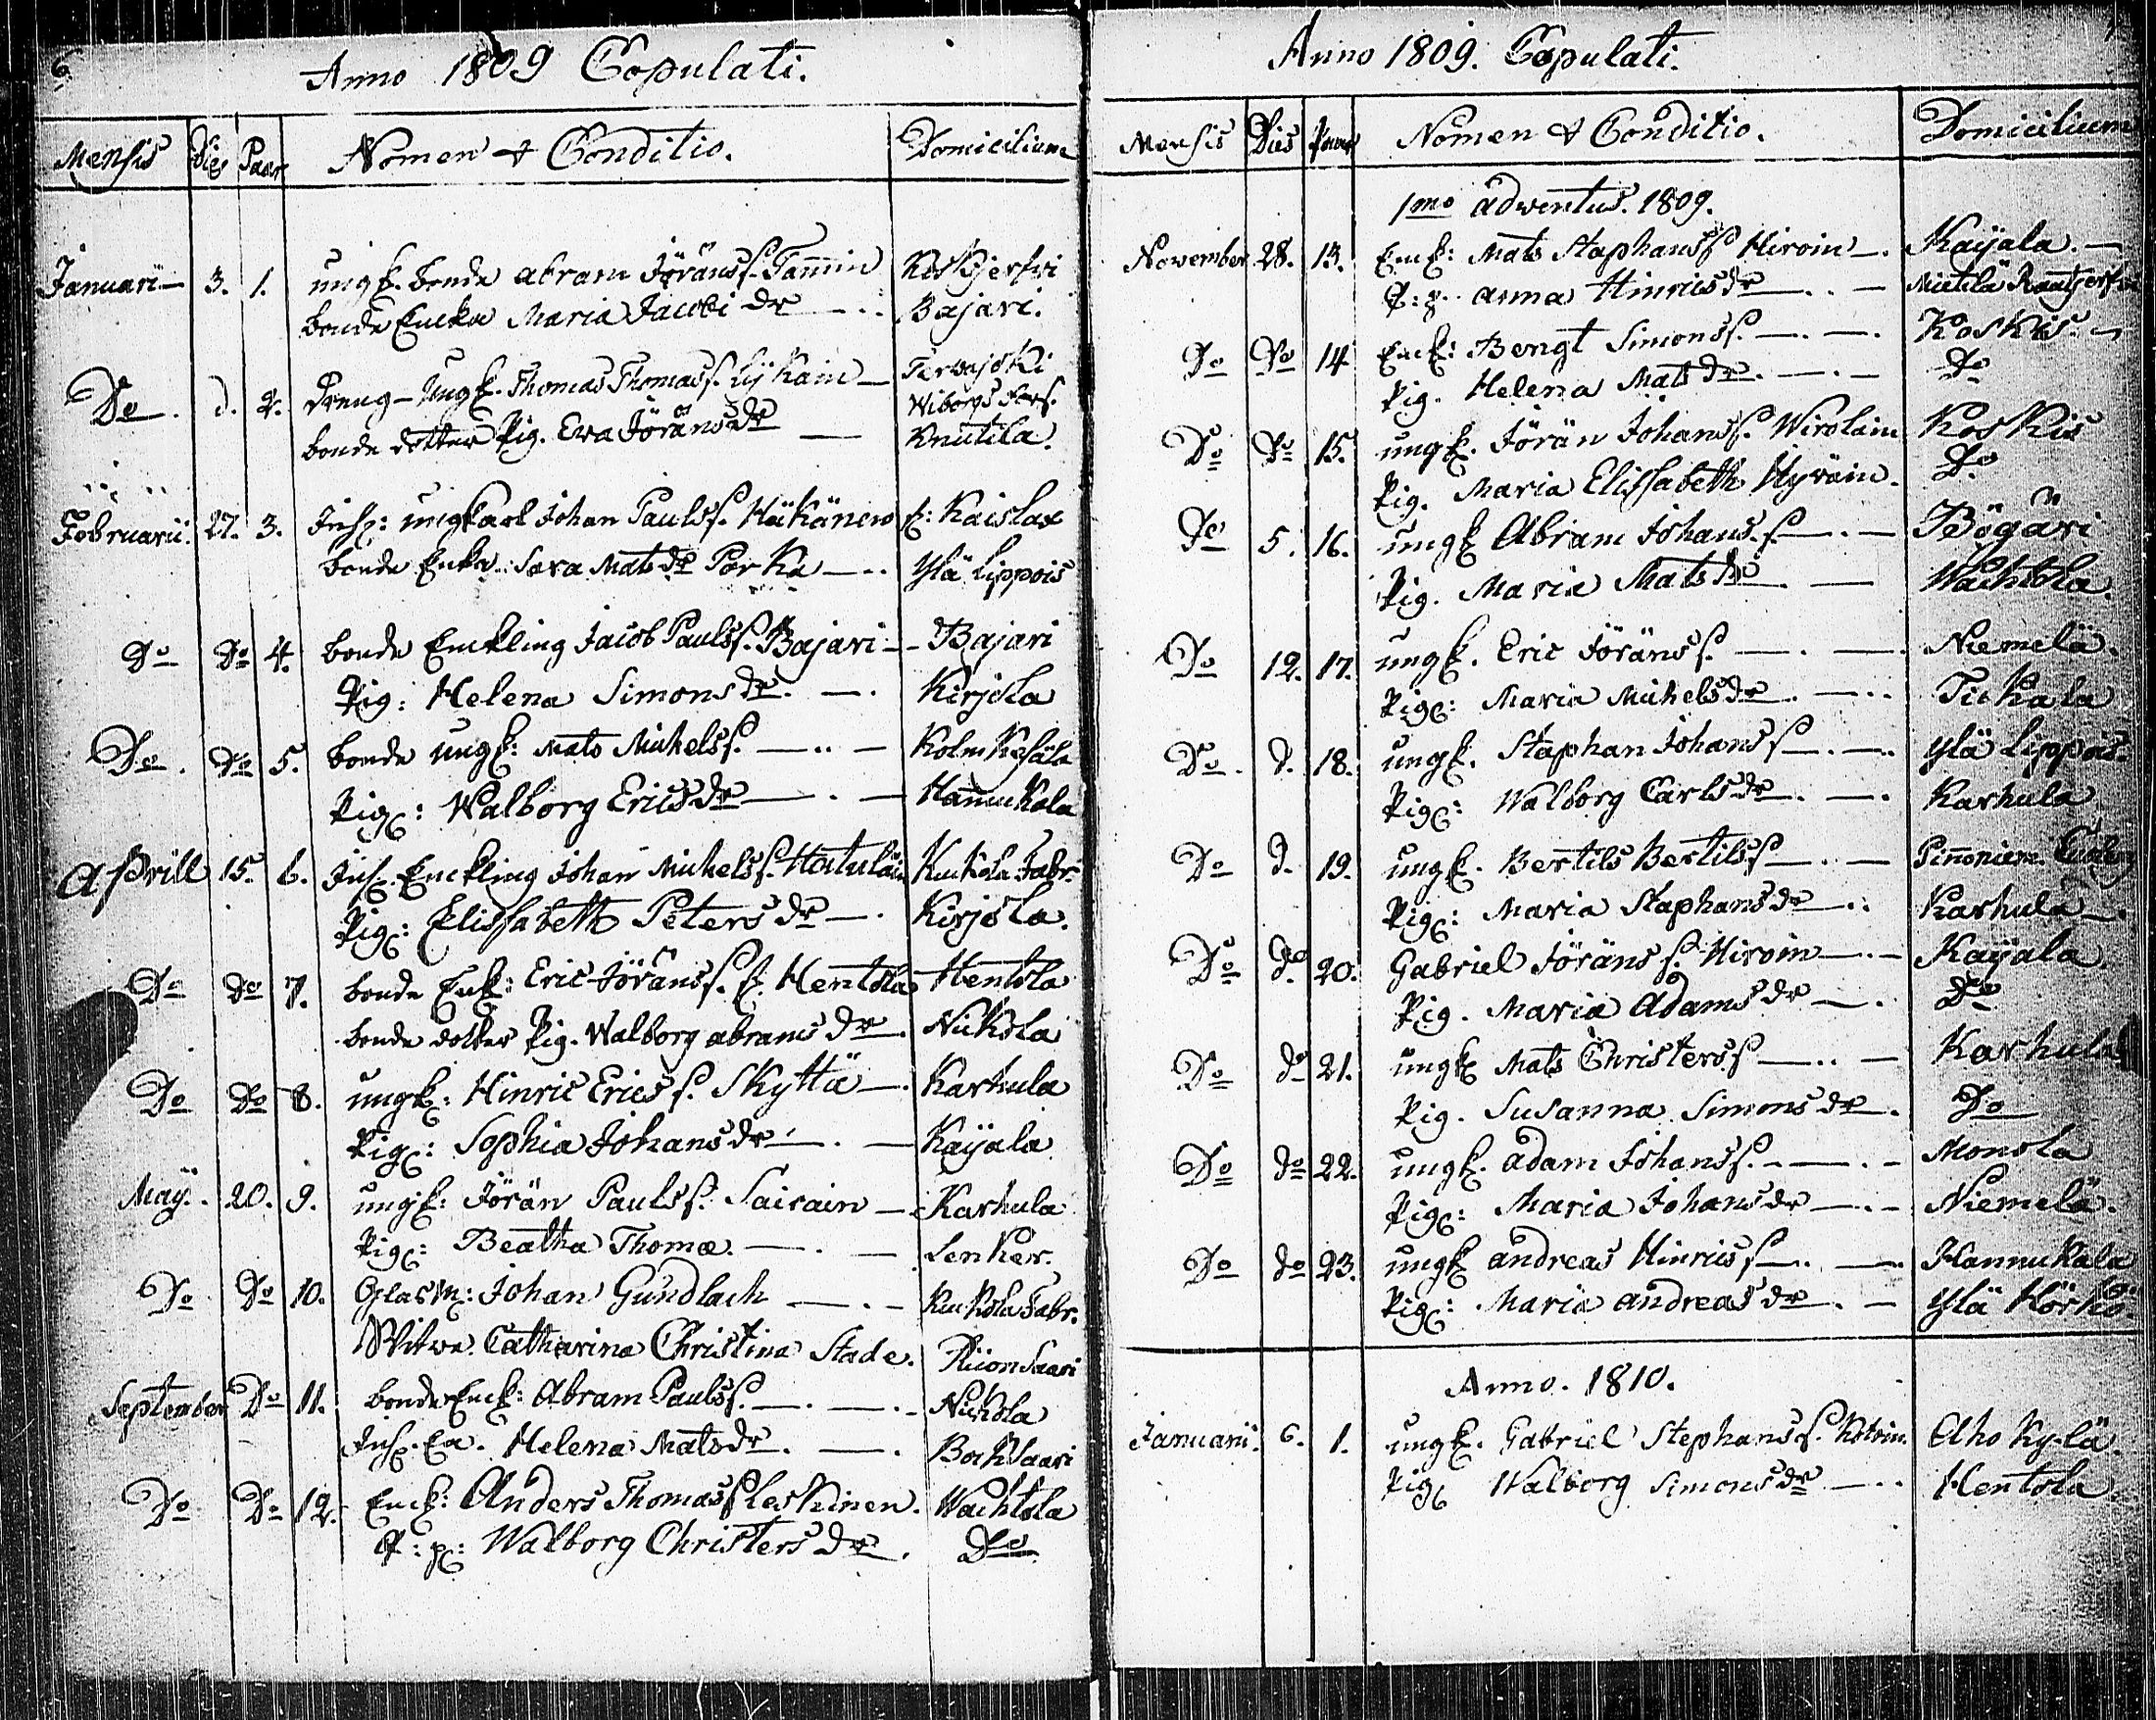 6
Anno 1809 Copulati.
Mensis Dies Paar Nomen & Conditio. Domicilium
Januarii 3. 1. ungk. bonde Abram Jöranss. Tammin Koskjerfwi
bonde Enka Maria Jacobi dr Bajari.
Do d. 2. Dreng Ungk. Thomas Thomass. Lijkain Terwajoki
Wiborgs Förs.
bonde dotter Pig. Ewa Jöransdr Knutila.
Februarii. 27. 3. Inh: ungkarl Johan Paulss. Häkänen k: Kaislax
bonde Enka Sara Matsdr Porka Ylä Lippois
Do Do 4. bonde Enkling Jacob Paulss. Bajari Bajari
Pig: Helena Simonsdr. Kirjola
Do. Do 5. bonde ungk: Mats Michelss. Kolmkesälä
Pig: Walborg Ericsdr Hannukala
Aprill 15. 6. Inh. Enckling Johan Michelss. Hatulain Kuckola Fabr.
Pig: Elissabeth Petersdr Kirjola.
Do Do 7. bonde Enk: Eric Jöranss. k. Hentola Hentola
bonde dotter Pig. Walborg Abramsdr Nickola
Do Do 8. ungk: Hinric Erics s. Skyttä Karhula
Pig: Sophia Johansdr Kaijala
Maij. 20. 9. ungk: Jörän Paulss. Sairain Karhula
Pig: Beatha Thomæ. Lenker.
Do Do 10. Glasm: Johan Gundlach Kuckola Fabr.
Witwe. Catharina Christina Stade. Riionsaari
September Do 11. bonde Enk: Abram Paulss. Nickola
Inh. Ea. Helena Matsdr. Bocksaari
Do Do 12. Enk: Anders Thomass Leskinen. Wachtola
Q: p: Walborg Christersdr. Do
Anno 1809. Copulati.
Mensis Dies Paar Nomen & Conditio. Domicilium
1mo adventus. 1809.
November 28. 13. Enk: Mats Staphanss Hirvin Kaijala.
Q: p. Anna Hinricsdr Mietilä
Do Do 14 Enk: Bengt Simonss. Koskis
Pig. Helena Matsdr. Do
Do Do 15. ungk. Jörän Johanss. Wirolain Koskis
Pig. Maria Elissabeth Hyväin. Do
Do 5. 16. ungk Abram Johans.s Bögäri
Pig. Maria Matsdr Wachtola.
Do 12. 17. ungk. Eric Jöränss. Niemelä.
Pig: Maria Michelsdr. Tickala
Do. d. 18. ungk. Staphan Johanss Ylä Lippois.
Pig: Walborg Carlsdr. Karhula
Do d. 19. ungk. Bertils Bertilss
Pig: Maria Staphansdr Karhula
Do do 20. Gabriel Jöräns s. Hirvin Kaijala
Pig. Maria Adamsdr Do
Do do 21. ungk Mats Christerss Karhula
Pig. Susanna Simonsdr. Do
Do do 22. ungk. Adam Johanss. Monola
Pig: Maria Johansdr Niemelä.
Do do 23. ungk Andreas Hinricss Hannukala
Pig: Maria Andreasdr. Ylä Körkö.
Anno. 1810.
Januarii. 6. 1. ungk. Gabriel Stephanss. Aho Kylä.
Pig Walborg Simonsdr Hentola.